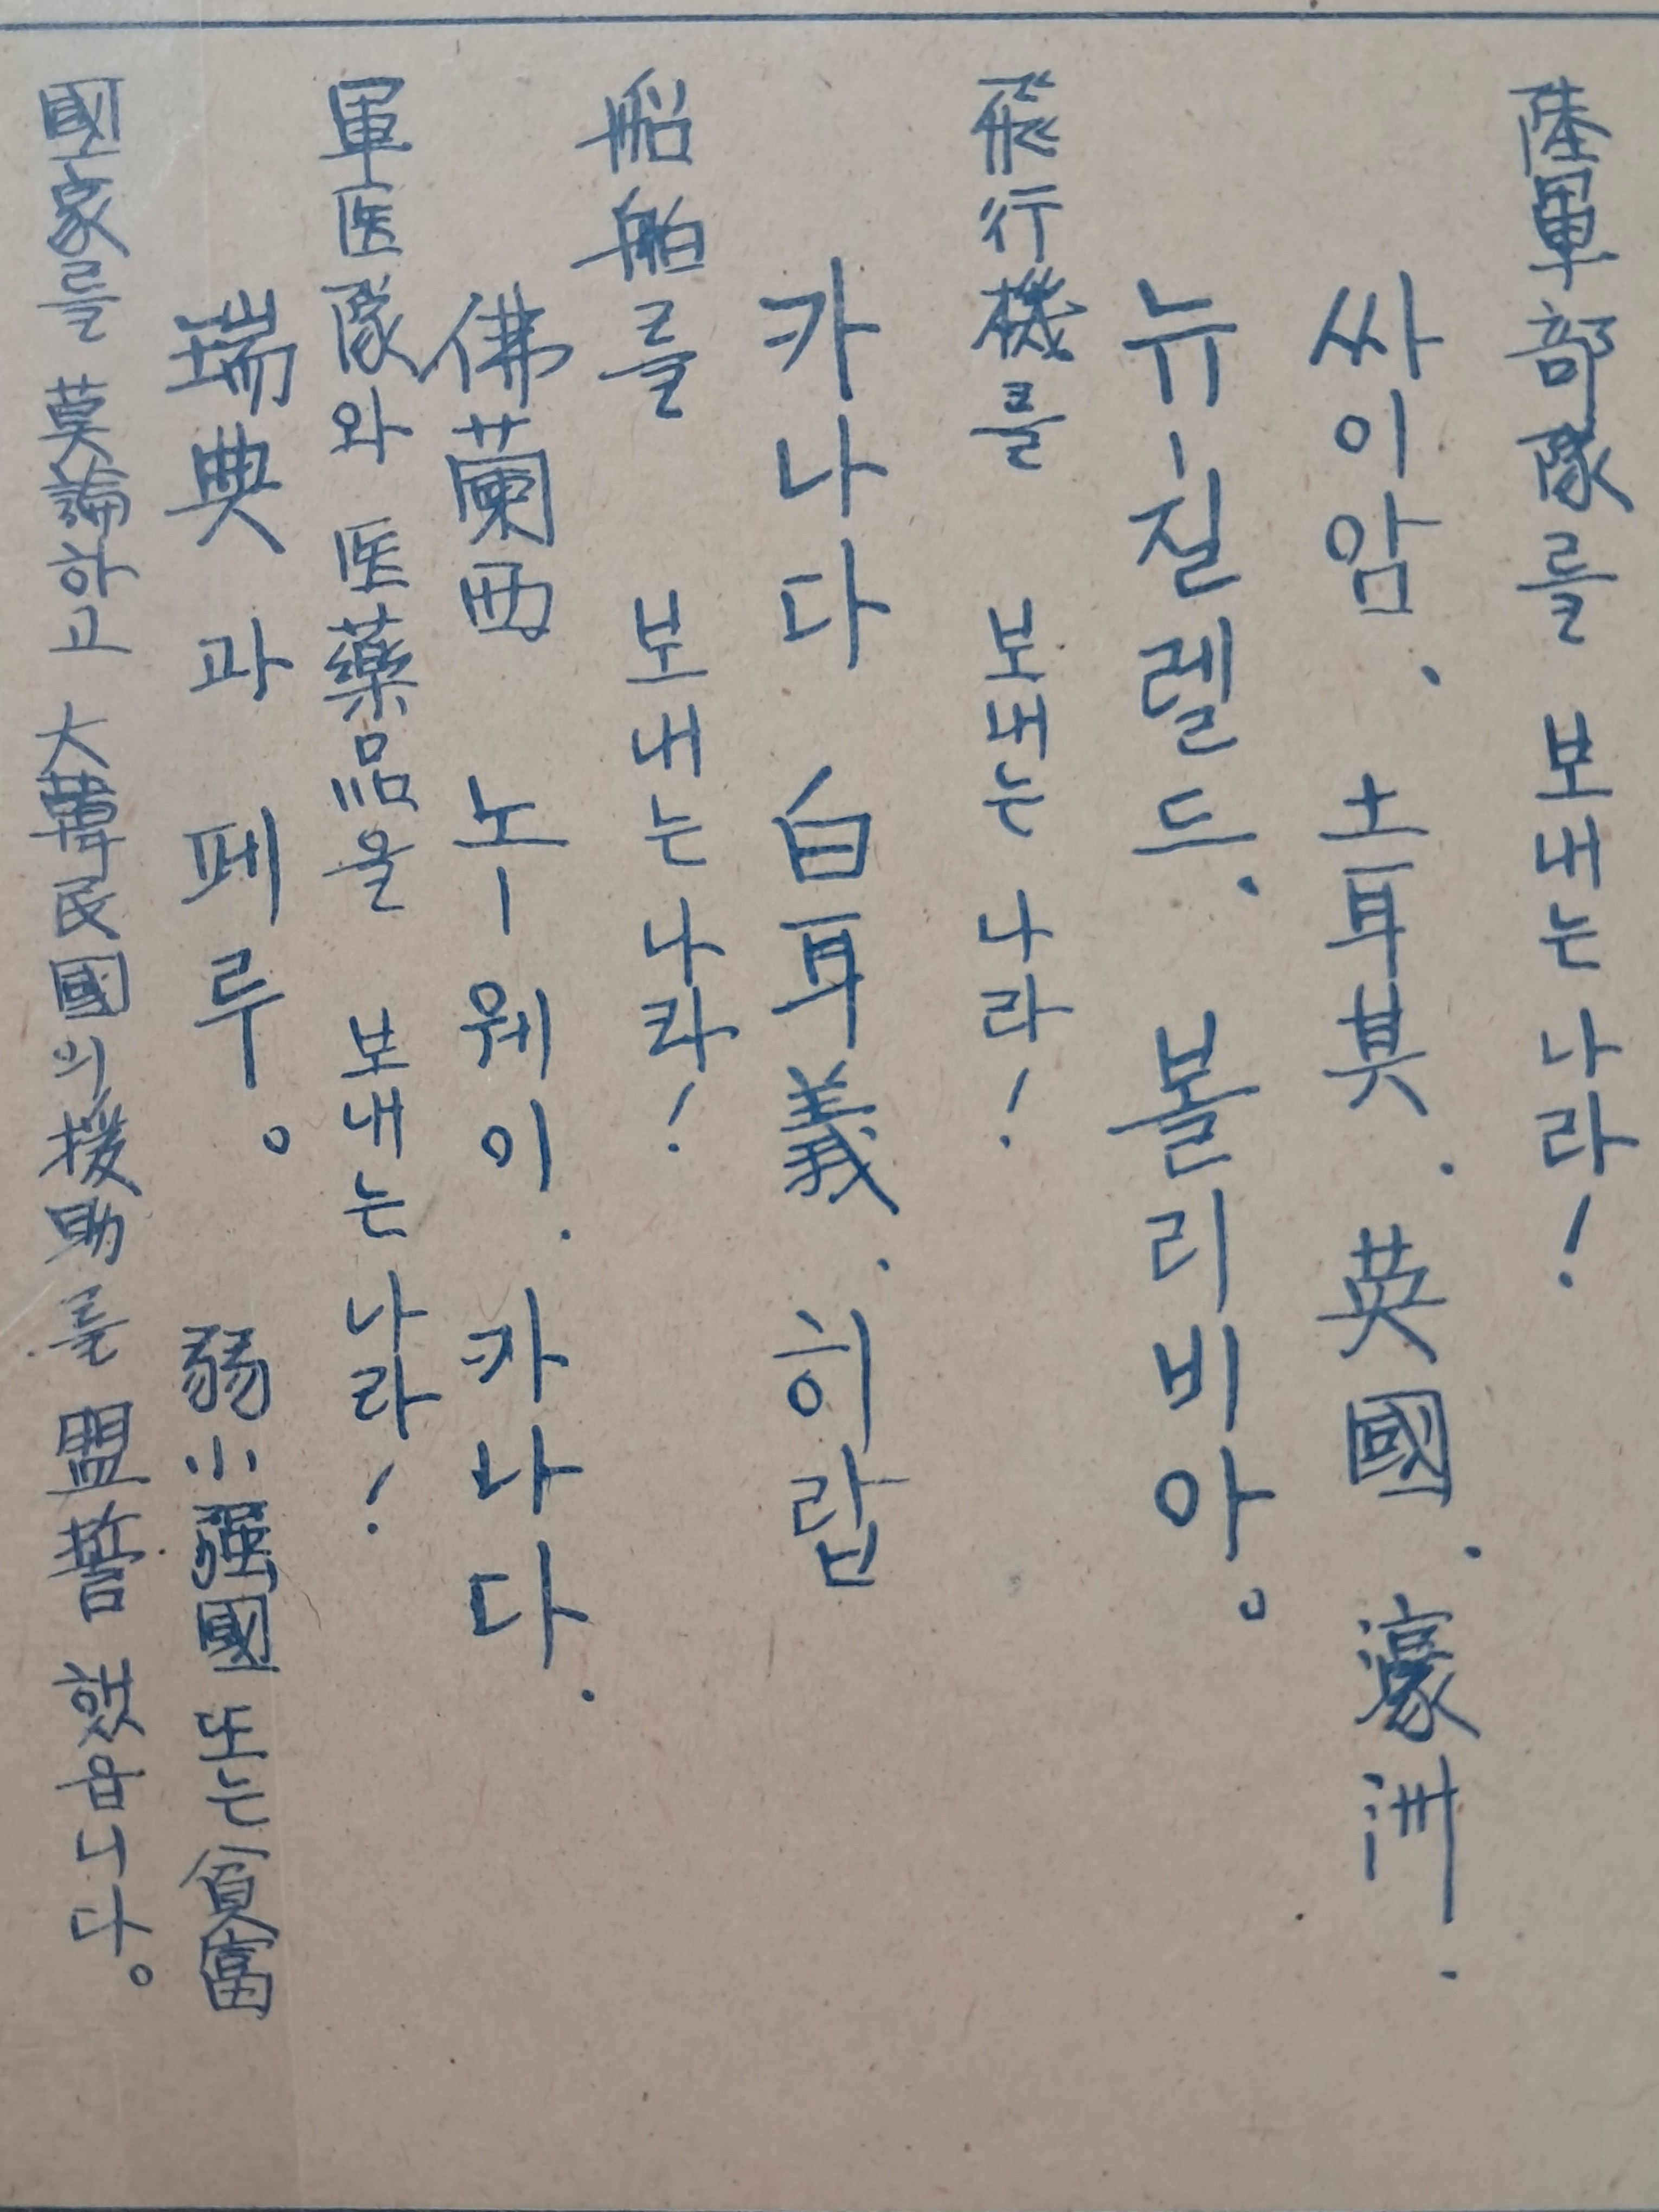 陸軍部隊를 보내는 나라!
싸이암. 土耳其. 英國. 濠洲.
뉴-질렌드. 볼리비아。
飛行機를 보내는 나라!
카나다 白耳義. 희랍
船舶를 보내는 나라!
佛蘭西 노-웨이. 카나다.
軍医隊와 医藥品을 보내는 나라!
瑞典과 페루。 弱小强國 또는 貧富
國家를 莫論하고 大韓民國의 援助를 盟誓했읍니다。